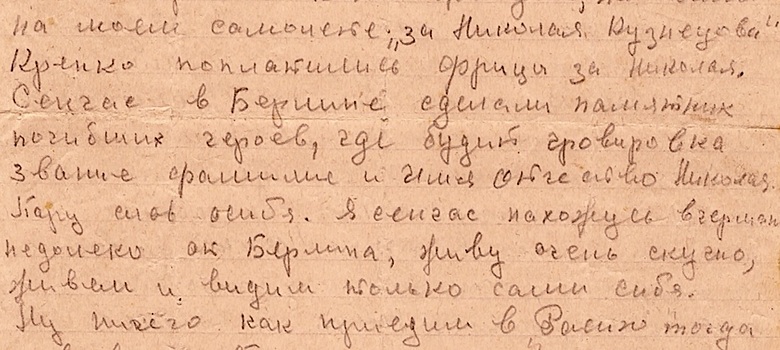 на моем самолете: „за Николая Кузнецова".
Крепко поплатились фрицы за Николая.
Сейчас в Берлине сделали памятник
погибших героев, где будит гровировка
звание фамилие и имя отчество Николая.
Пару слов осибя. Я сейчас нахожусь вгерман
недолеко от Берлина, живу очень скучно,
живем и видим только сами сибя.
Ну ничего как приедим в Расию тогда